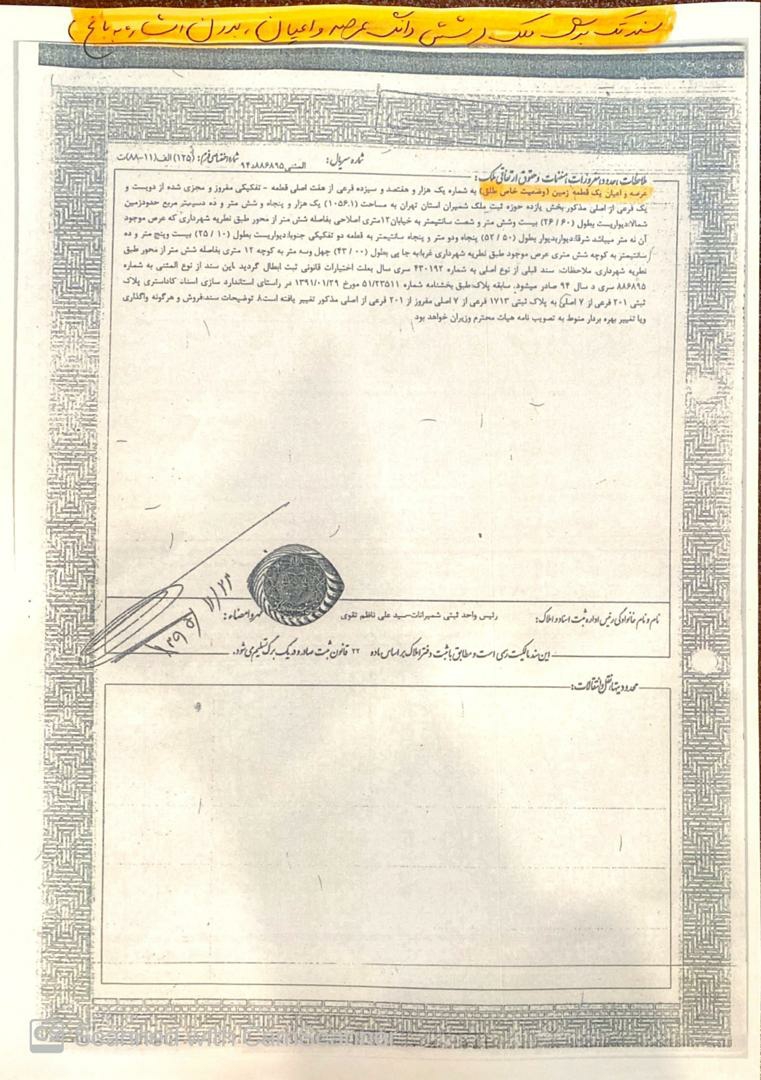 سند تک برگ ملک (شش دانگ عرصه و اعیان، بدون اشاره به باغ)
شماره سریال: شماره اختصاصی فرم: (۱۲۵) الف (۱۱-۸۸)ت
المثنی ۸۸۶۸۹۵د۹۴
ملاحظات، حدود، مفروزات، انضمامات و حقوق ارتفاقی ملک:
عرصه و اعیان یک قطعه زمین (وضعیت خاص طلق) به شماره یک هزار و هفتصد و سیزده فرعی از هفت اصلی قطعه - تفکیکی مفروز و مجزی شده از دویست و
یک فرعی از اصلی مذکور بخش یازده حوزه ثبت ملک شمیران استان تهران به مساحت (۱۰۵۶.۱) یک هزار و پنجاه و شش متر و ده دسیمتر مربع حدودزمین
شمالا:دیواریست بطول (۶۰ / ۲۶) بیست وشش متر و شصت سانتیمتر به خیابان۱۲متری اصلاحی بفاصله شش متر از محور طبق نظریه شهرداری که عرض موجود
آن نه متر میباشد شرقا:دیواربدیوار بطول (۵۰ / ۵۲) پنجاه ودو متر و پنجاه سانتیمتر به قطعه دو تفکیکی جنوبا:دیواریست بطول (۱۰ / ۲۵) بیست وپنج متر و ده
سانتیمتر به کوچه شش متری عرض موجود طبق نظریه شهرداری غربا:به جا یی بطول (۰۰ / ۴۳) چهل وسه متر به کوچه ۱۲ متری بفاصله شش متر از محور طبق
نظریه شهرداری. ملاحظات، سند قبلی از نوع اصلی به شماره ۴۳۰۱۹۲ سری سال بعلت اختیارات قانونی ثبت ابطال گردید ،این سند از نوع المثنی به شماره
۸۸۶۸۹۵ سری د سال ۹۴ صادر میشود. سابقه پلاک،طبق بخشنامه شماره ۵۱/۲۳۵۱۱ مورخ ۱۳۹۱/۰۱/۲۹ در راستای استاندارد سازی اسناد کاداستری پلاک
ثبتی ۲۰۱ فرعی از ۷ اصلی به پلاک ثبتی ۱۷۱۳ فرعی از ۷ اصلی مفروز از ۲۰۱ فرعی از اصلی مذکور تغییر یافته است.۸ توضیحات سند:فروش و هرگونه واگذاری
ویا تغییر بهره بردار منوط به تصویب نامه هیات محترم وزیران خواهد بود
نام و نام خانوادگی رئیس اداره ثبت اسناد و املاک: رئیس واحد ثبتی شمیرانات-سید علی ناظم تقوی مهر و امضاء:
این سند مالکیت رسمی است و مطابق با ثبت دفتر املاک بر اساس ماده ۲۲ قانون ثبت صادر و در یک برگ تسلیم می‌شود.
محدودیتها، نقل و انتقالات:
Scanned with CamScanner